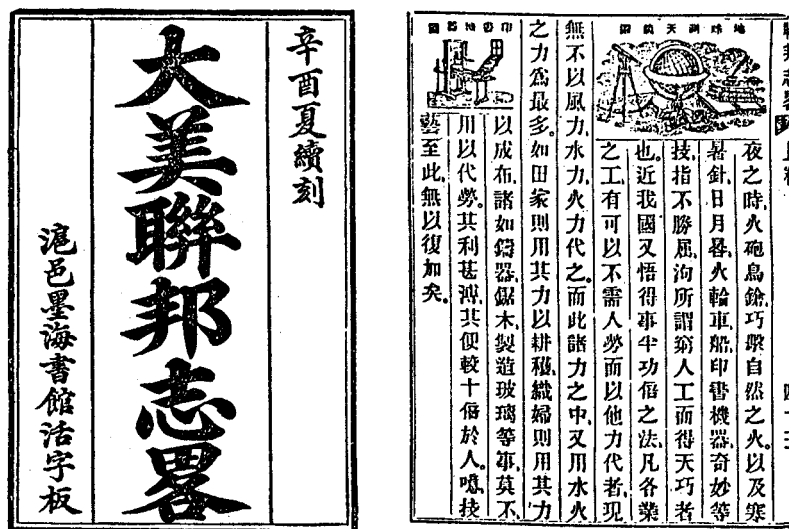 辛酉夏續刻
大美聯邦志畧
滬邑墨海書館活字板
地球測天
夜之時火砲鳥鎗巧發自然之火以及寒
暑針日月晷火輪車船印書機器奇妙等
技指不勝屈洵所謂窮人工而得天巧者
也近我國又悟得事半功倍之法凡各業
之工有可以不需人勞而以他力代者現
無不以風力水力火力代之而此諸力之中又用水火
之力爲最多如田家則用其力以耕穫織婦則用其力
印書
以成布諸如鑄器鋸木製造玻璃等事莫不
用以代勞其利甚溥其便較十倍於人噫技
藝至此無以復加矣